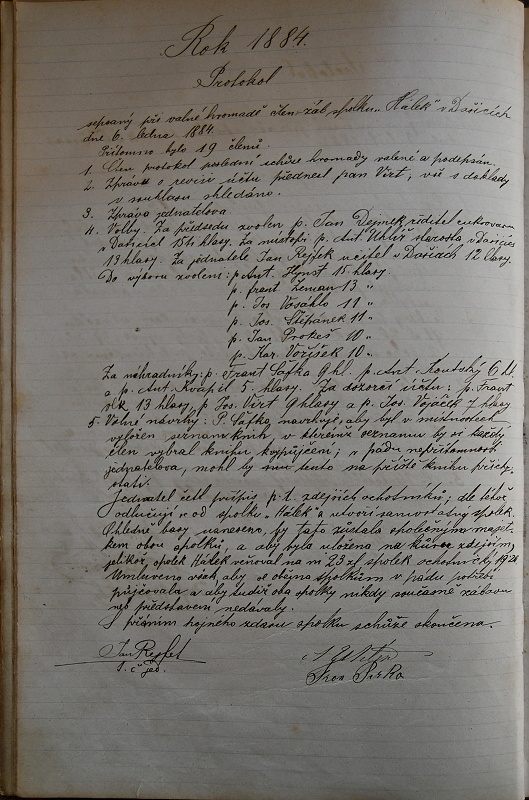 Rok 1884.
Protokol
sepsaný při valné hromadě člen. záb. spolku „Hálek" v Dašicích
dne 6. ledna 1884.
Přítomno bylo 19 členů.
1. Čten protokol poslední schůze hromady valené a podepsán.
2. Zpráva o revisi účtů přednesl pan Virt, vše s doklady
v souhlasu shledáno.
3. Zpráva jednatelova
4. Volby. Za předsedu zvolen p. Jan Dejmek, ředitel cukrovaru
v Dašicích 15ti hlasy. Za místopř. p. Ant. Uhlíř starosta v Dašicích
13 hlasy. Za jednatele Jan Rejfek učitel v Dašicích 12 hlasy.
Do výboru zvoleni: p. Ant. Hynst 15 hlasy
p. frant. Zeman 13 „
p. Jos. Vosáhlo 11 „
p. Jos. Štěpánek 11 „
p. Jan Prokeš 10 „
p. Kar. Voříšek 10 „
Za náhradníky: p. Frant Šafka 9 hl. p. Ant. Koutský 6 hl.
a p. Ant. Kvapil 5. hlasy. Za dozorce účtů: p. Frant
13 hlasy, p. Jos. Virt 9 hlasy, a p. Jos. Vojáček 7 hlasy
5. Volné návrhy: P. Šafka navrhuje, aby byl v místnostech
vyložen seznam knih, v kterémž seznamu by si každý
člen vybral knihu k vypůjčení; v pádu nepřítomnosti
jednatelova, mohl by mu tento na příště knihu přichystati.
Jednatel četl přípis p. t. zdejších ochotníků; dle téhož
odlučují se od spolku „Hálek" a utvoří samostatný spolek.
Ohledně basy usneseno, by tato zůstala společným majetkem
obou spolků, a aby byla uložena na kůru zdejším,
jelikož spolek Hálek věnoval na ni 23 zl spolek ochotnický 19 zl
Umluveno však, aby se oběma spolkům v pádu potřeby
půjčovala a aby tudíž oba spolky nikdy současně zábavu
neb představení nedávaly.
S přáním hojného zdaru spolku schůze skončena.
Jan Rejfek
t. č. jed.